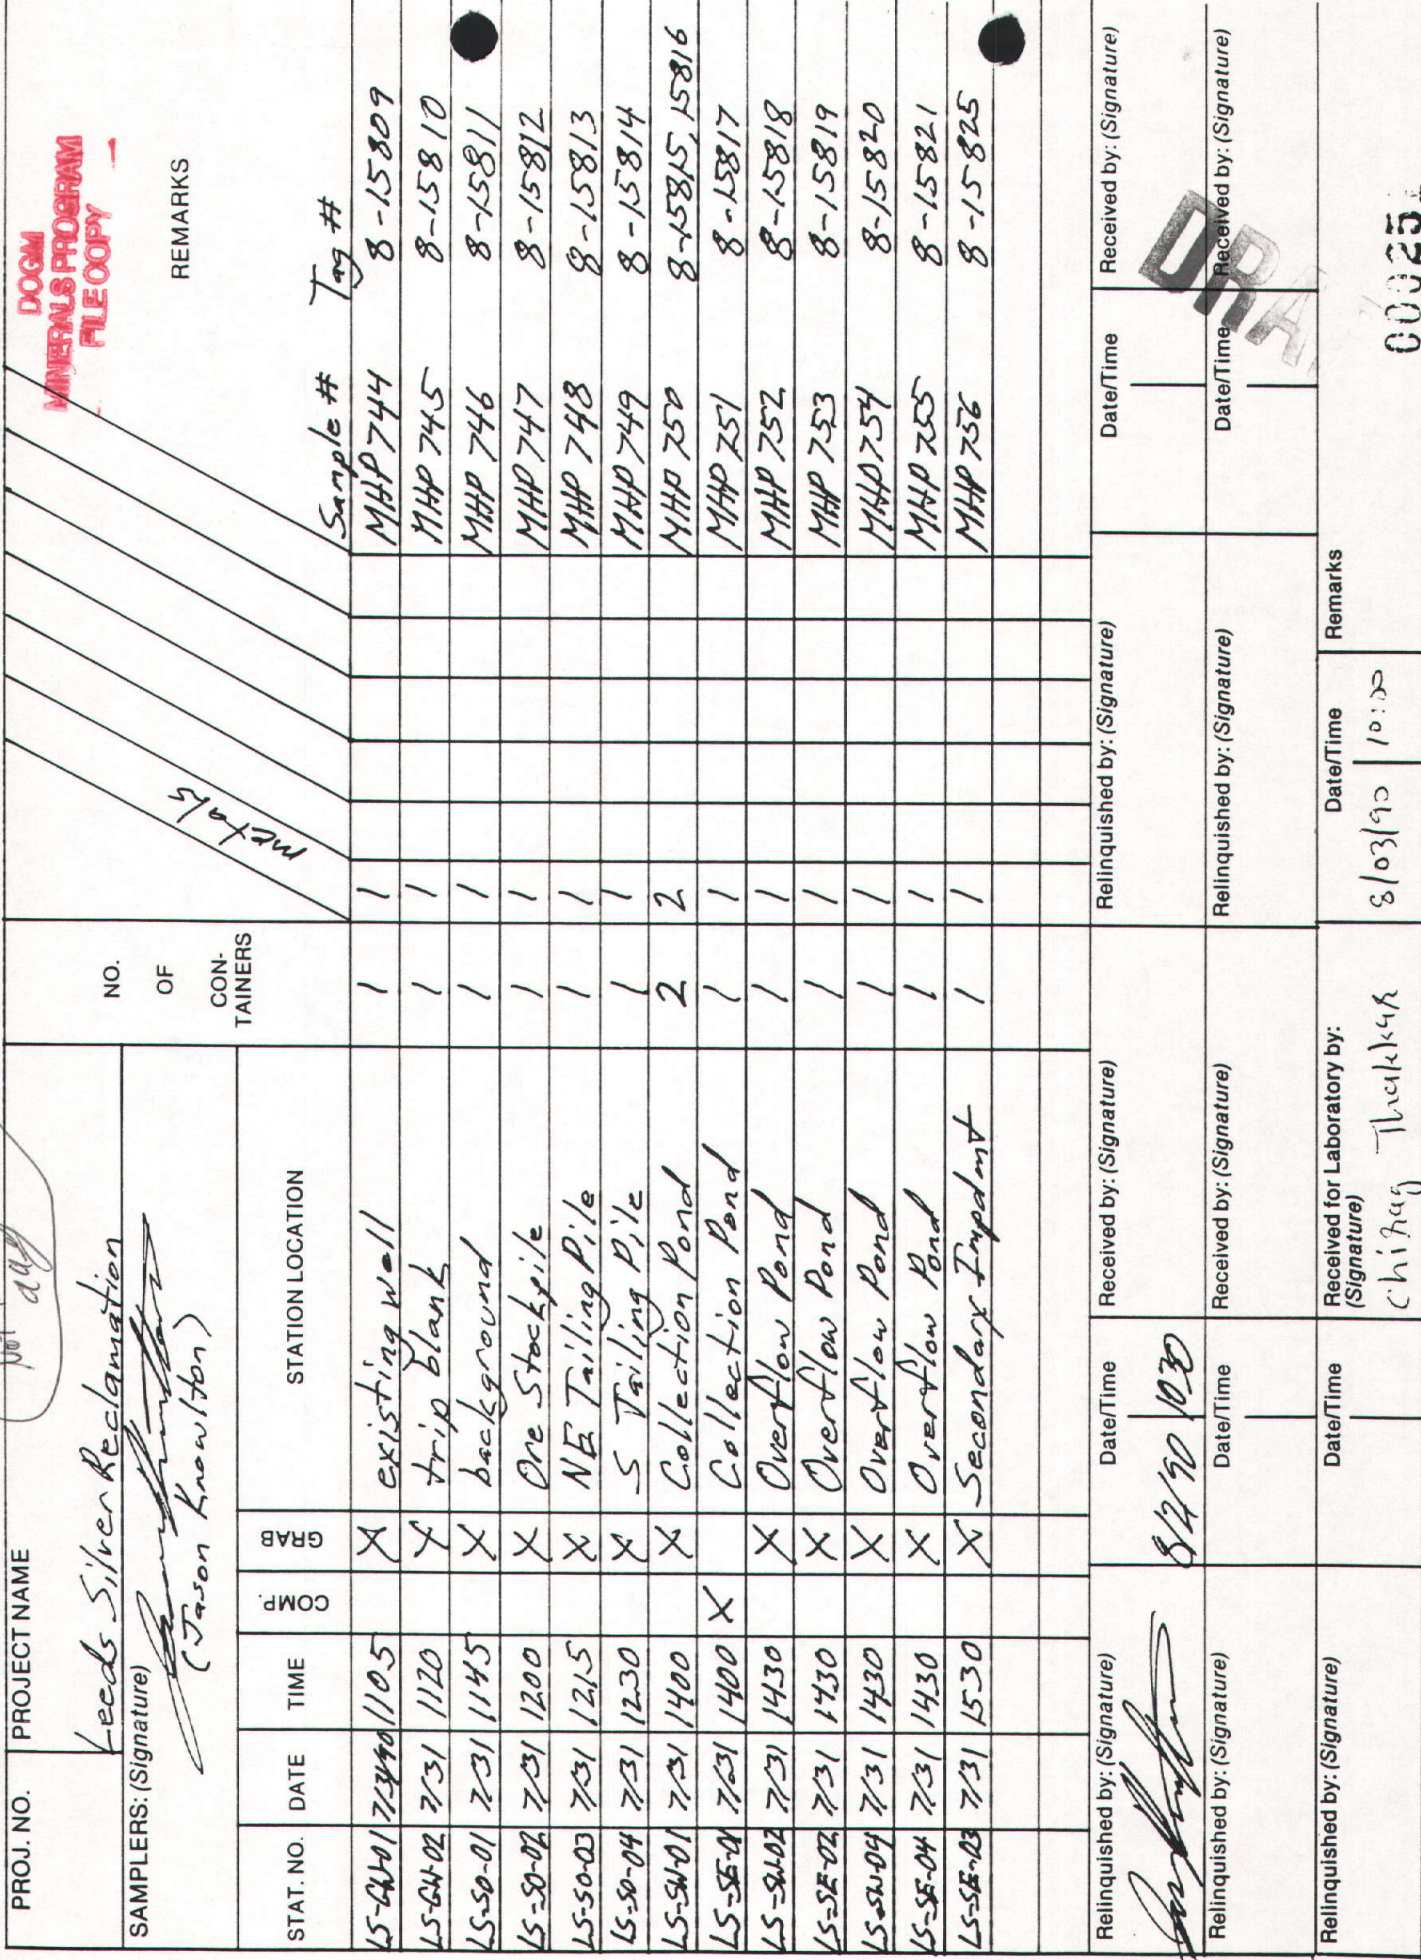 DOGM
MINERALS PROGRAM
FILE COPY
PROJ. NO. PROJECT NAME
Leeds Silver Reclamation
SAMPLERS: (Signature)
(Jason Knowlton)
NO.
OF
CON-
TAINERS
metals
REMARKS
STAT. NO. DATE TIME COMP. GRAB STATION LOCATION Sample # Tag #
LS-GW-01 7/31/90 1105 X existing well 1 1 MHP 744 8-15809
LS-GW-02 7/31 1120 X trip blank 1 1 MHP 745 8-15810
LS-SO-01 7/31 1145 X background 1 1 MHP 746 8-15811
LS-SO-02 7/31 1200 X Ore Stockpile 1 1 MHP 747 8-15812
LS-SO-03 7/31 1215 X NE Tailing Pile 1 1 MHP 748 8-15813
LS-SO-04 7/31 1230 X S Tailing Pile 1 1 MHP 749 8-15814
LS-SW-01 7/31 1400 X Collection Pond 2 2 MHP 750 8-15815, 15816
LS-SE-01 7/31 1400 X Collection Pond 1 1 MHP 751 8-15817
LS-SW-02 7/31 1430 X Overflow Pond 1 1 MHP 752 8-15818
LS-SE-02 7/31 1430 X Overflow Pond 1 1 MHP 753 8-15819
LS-SW-04 7/31 1430 X Overflow Pond 1 1 MHP 754 8-15820
LS-SE-04 7/31 1430 X Overflow Pond 1 1 MHP 755 8-15821
LS-SE-03 7/31 1530 X Secondary Impdmt 1 1 MHP 756 8-15825
Relinquished by: (Signature) Date/Time Received by: (Signature) Relinquished by: (Signature) Date/Time Received by: (Signature)
8/2/90 1030
DRA
Relinquished by: (Signature) Date/Time Received by: (Signature) Relinquished by: (Signature) Date/Time Received by: (Signature)
Relinquished by: (Signature) Date/Time Received for Laboratory by: Date/Time Remarks
(Signature)
Chirag Thakkar 8/03/90 10:00
00025